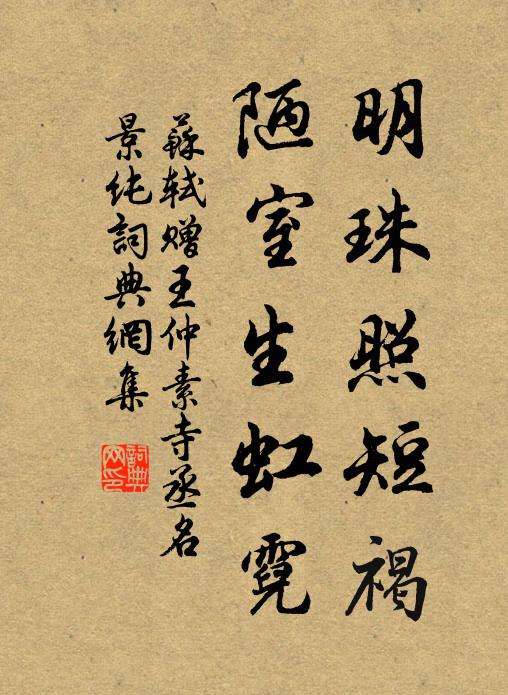 明珠照短褐
陋室生虹霓
蘇軾贈王仲素寺丞名
景純詞典網集
詞典网印